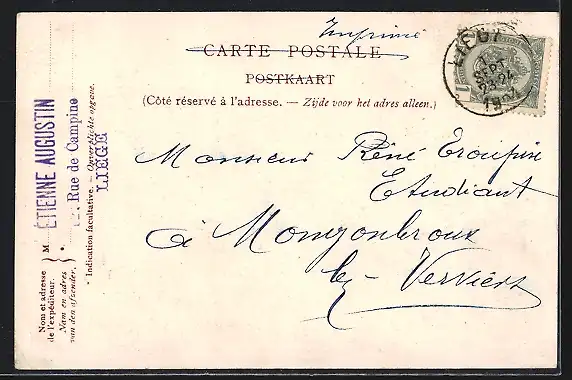 Imprimé
CARTE POSTALE
POSTKAART
(Côté réservé à l'adresse. — Zijde voor het adres alleen.)
Monsieur René
Etudiant
à
lez - Verviers
LIÈGE
1
SEPT
23-24
1
Nom et adresse
de l'expéditeur.
Nam en adres
van den afzender.
M
ETIENNE AUGUSTIN
Rue de Campine
* Indication facultative. — Onverplichte opgave.
LIEGE